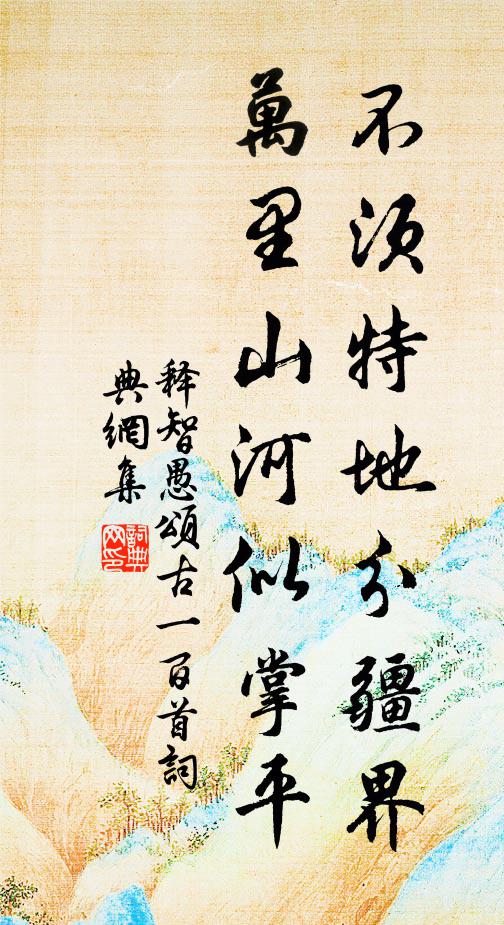 不须特地分疆界
萬里山河似掌平
释智愚颂古一百首詞
典網集
詞典
网印